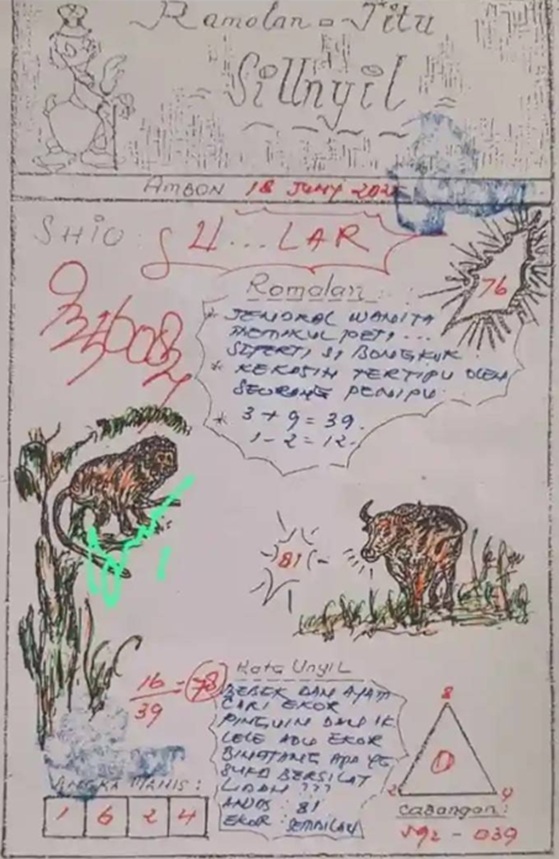 Ramalan - Jitu
Si Unyil
AMBON 18 JUNY
SHIO : ULAR
Ramalan :
76
* JENDRAL WANITA
MEMIKUL PETI ...
SEPERTI SI BONGKUK
* KEKASIH TERTIPU OLEH
SEORANG PENIPU.
* 3 + 9 = 39.
1 - 2 = 12.
81
16 = 78
39
Kata Unyil
BEBEK DAN AYAM
CARI EKOR
PINGUIN DAN IK
LELE ADU EKOR
BINATANG APA YG
SUKA BERSILAT
LIDAH ???
ANDA : 81
EKOR : SEMBILAN
8
0
2 4
ANGKA MANIS :
1 6 2 4
Cabangan :
- 039